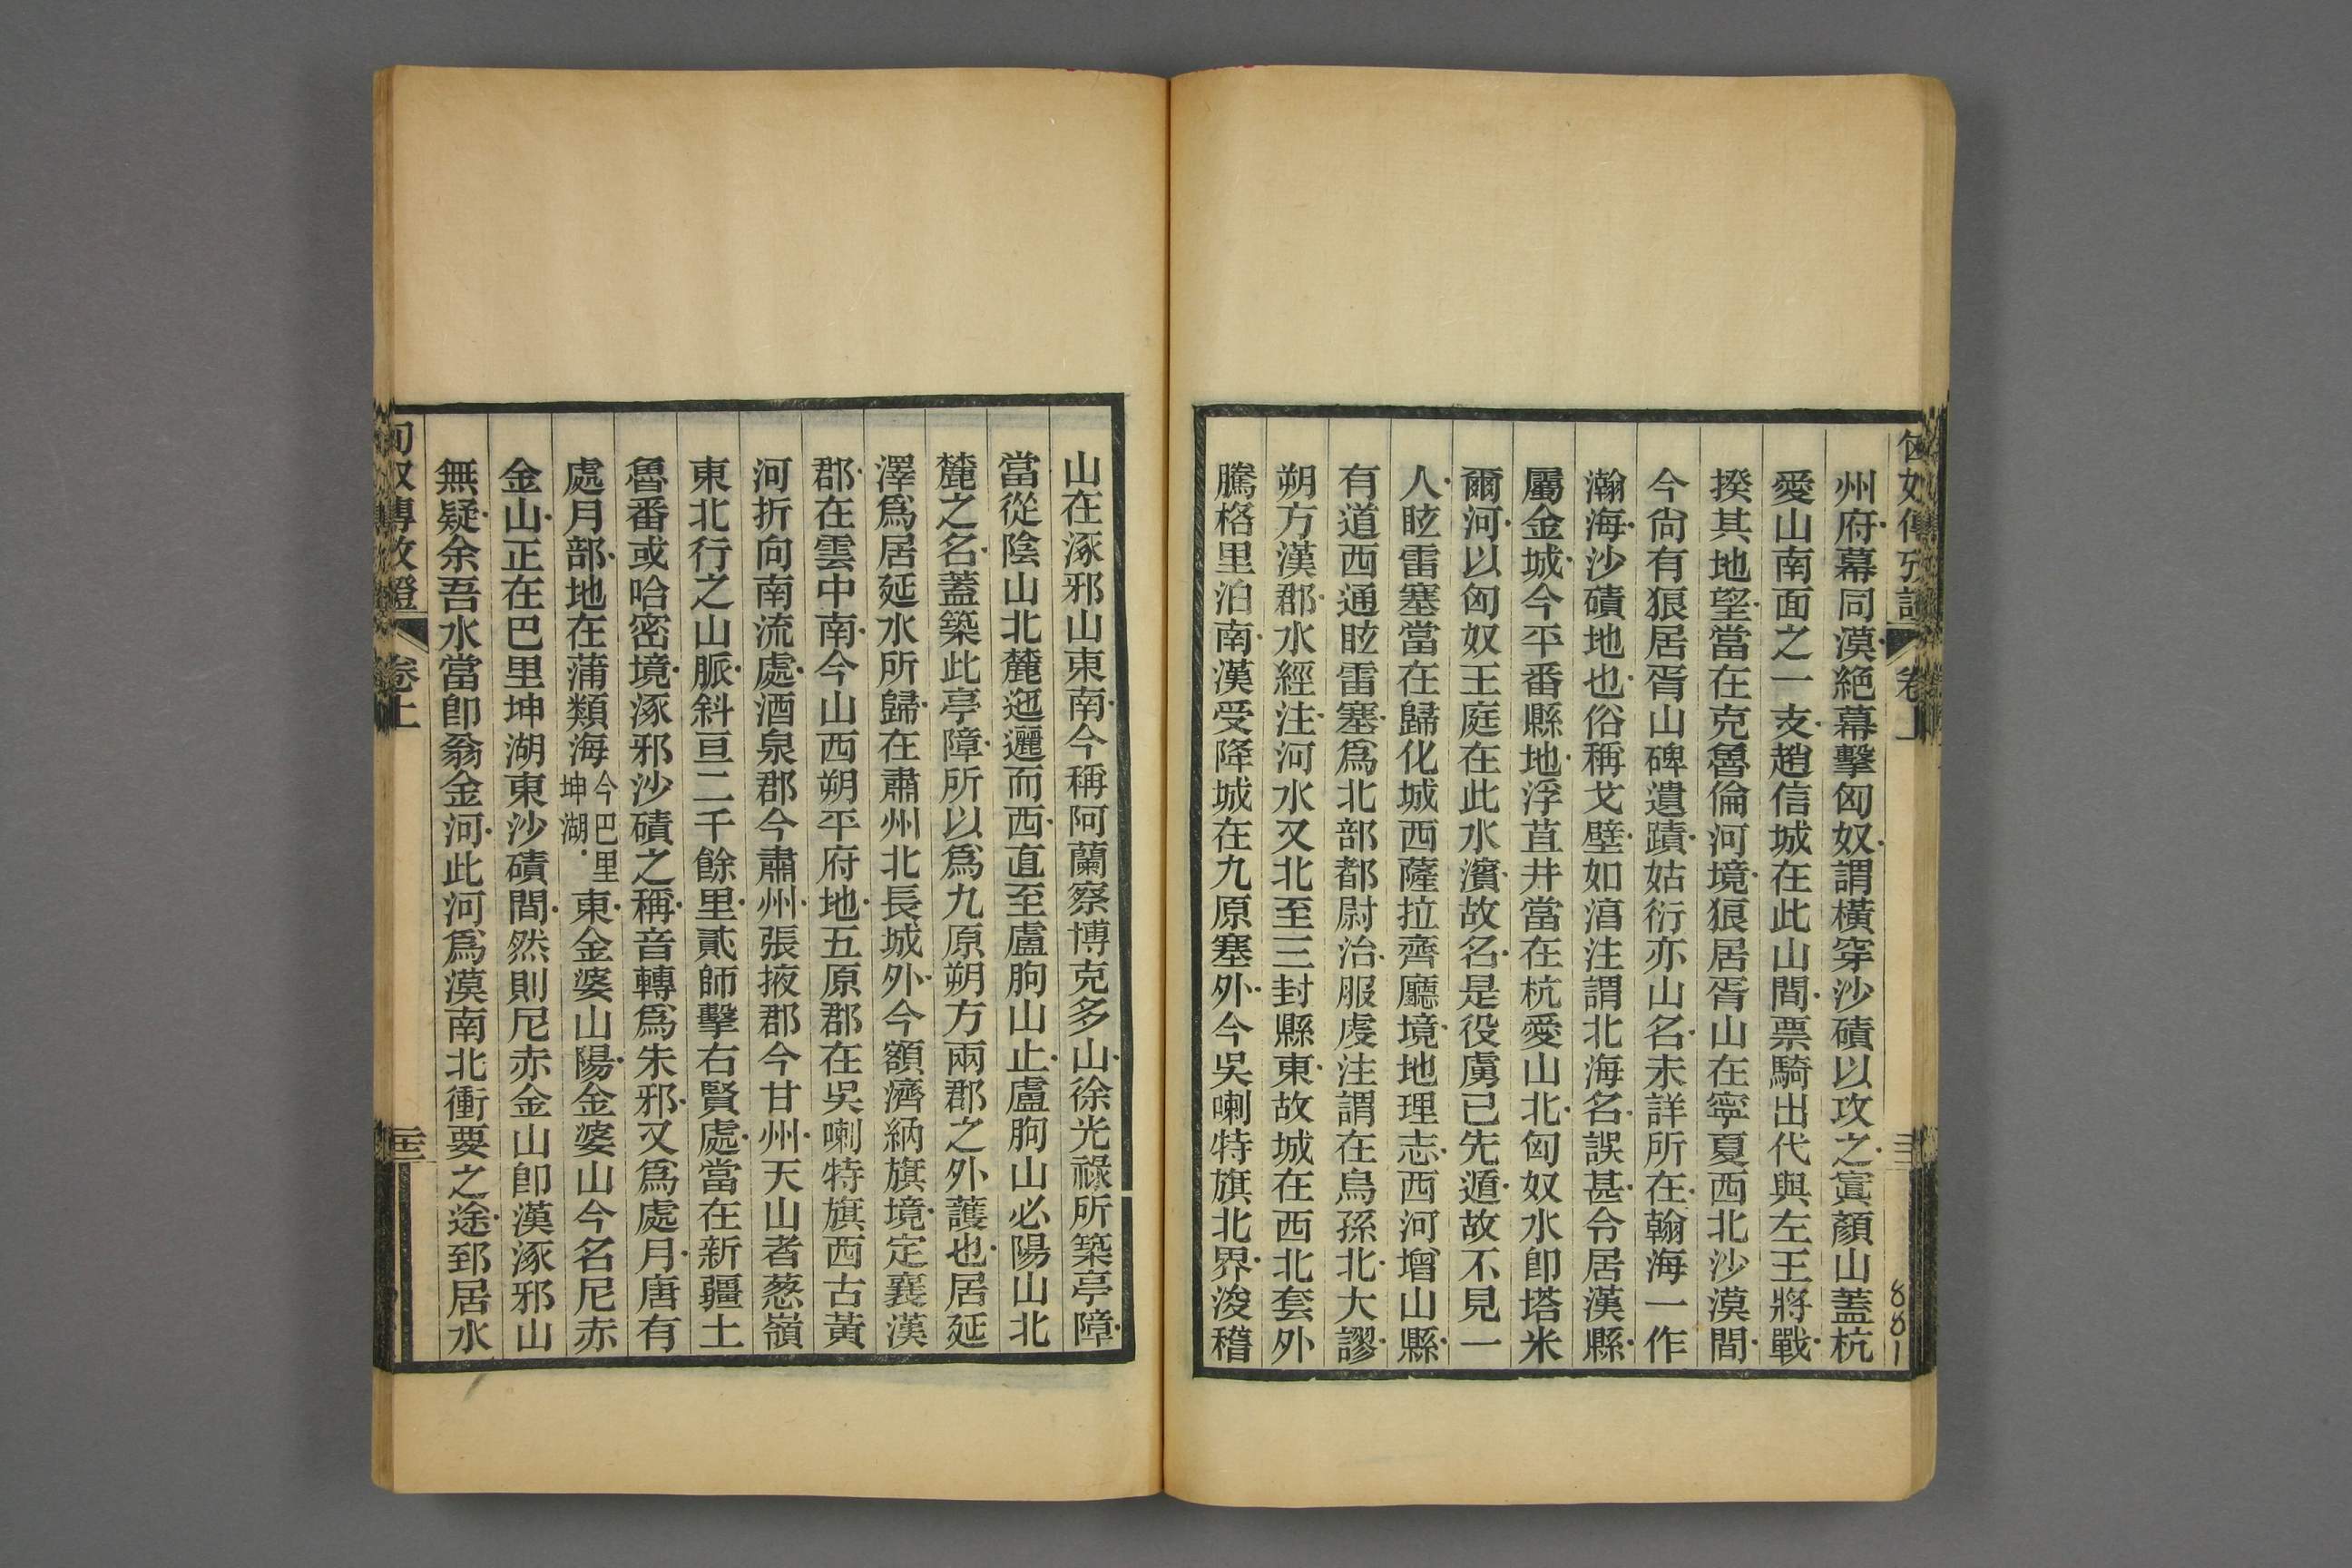 匈奴傳攷證 卷上
州府幕同漠絕幕擊匈奴謂橫穿沙磧以攻之寘顏山蓋杭
愛山南面之一支趙信城在此山間票騎出代與左王將戰
揆其地望當在克魯倫河境狼居胥山在寧夏西北沙漠間
今尙有狼居胥山碑遺蹟姑衍亦山名未詳所在翰海一作
瀚海沙磧地也俗稱戈壁如湻注謂北海名誤甚令居漢縣
屬金城今平番縣地浮苴井當在杭愛山北匈奴水卽塔米
爾河以匈奴王庭在此水濱故名是役虜已先遁故不見一
人眩雷塞當在歸化城西薩拉齊廳境地理志西河增山縣
有道西通眩雷塞爲北部都尉治服虔注謂在烏孫北大謬
朔方漢郡水經注河水又北至三封縣東故城在西北套外
騰格里泊南漢受降城在九原塞外今吳喇特旗北界浚稽
881
山在涿邪山東南今稱阿蘭察博克多山徐光祿所築亭障
當從陰山北麓迤邐而西直至盧朐山止盧朐山必陽山北
麓之名蓋築此亭障所以爲九原朔方兩郡之外護也居延
澤爲居延水所歸在肅州北長城外今額濟納旗境定襄漢
郡在雲中南今山西朔平府地五原郡在吳喇特旗西古黃
河折向南流處酒泉郡今肅州張掖郡今甘州天山者葱嶺
東北行之山脈斜亘二千餘里貳師擊右賢處當在新疆土
魯番或哈密境涿邪沙磧之稱音轉爲朱邪又爲處月唐有
處月部地在蒲類海今巴里坤湖東金婆山陽金婆山今名尼赤
金山正在巴里坤湖東沙磧間然則尼赤金山卽漢涿邪山
無疑余吾水當卽翁金河此河爲漠南北衝要之途郅居水
匈奴傳攷證 卷上